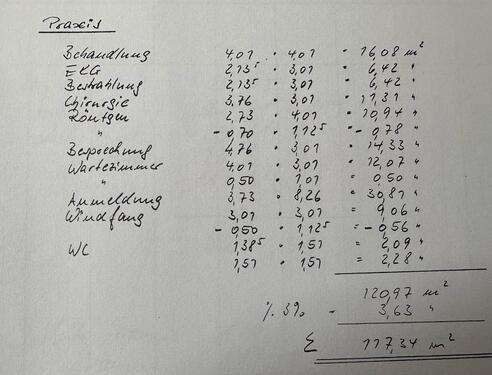 Praxis
Behandlung 4,01 · 4,01 = 16,08 m²
EKG 2,13⁵ · 3,01 = 6,42 "
Bestrahlung 2,13⁵ · 3,01 = 6,42 "
Chirurgie 3,76 · 3,01 = 11,31 "
Röntgen 2,73 · 4,01 = 10,94 "
" - 0,70 · 1,12⁵ = - 0,78 "
Besprechung 4,76 · 3,01 = 14,33 "
Wartezimmer 4,01 · 3,01 = 12,07 "
" 0,50 · 1,01 = 0,50 "
Anmeldung 3,73 · 8,26 = 30,81 "
Windfang 3,01 · 3,01 = 9,06 "
- 0,50 · 1,12⁵ = - 0,56 "
WC 1,38⁵ · 1,51 = 2,09 "
1,51 · 1,51 = 2,28 "
120,97 m²
% 3% - 3,63 "
Σ 117,34 m²